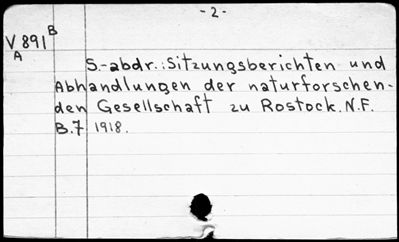 -2-
V 891 B
A
S.-abdr.: Sitzungsberichten und
Abhandlungen der naturforschen-
den Gesellschaft zu Rostock. N.F.
B.7 1918.